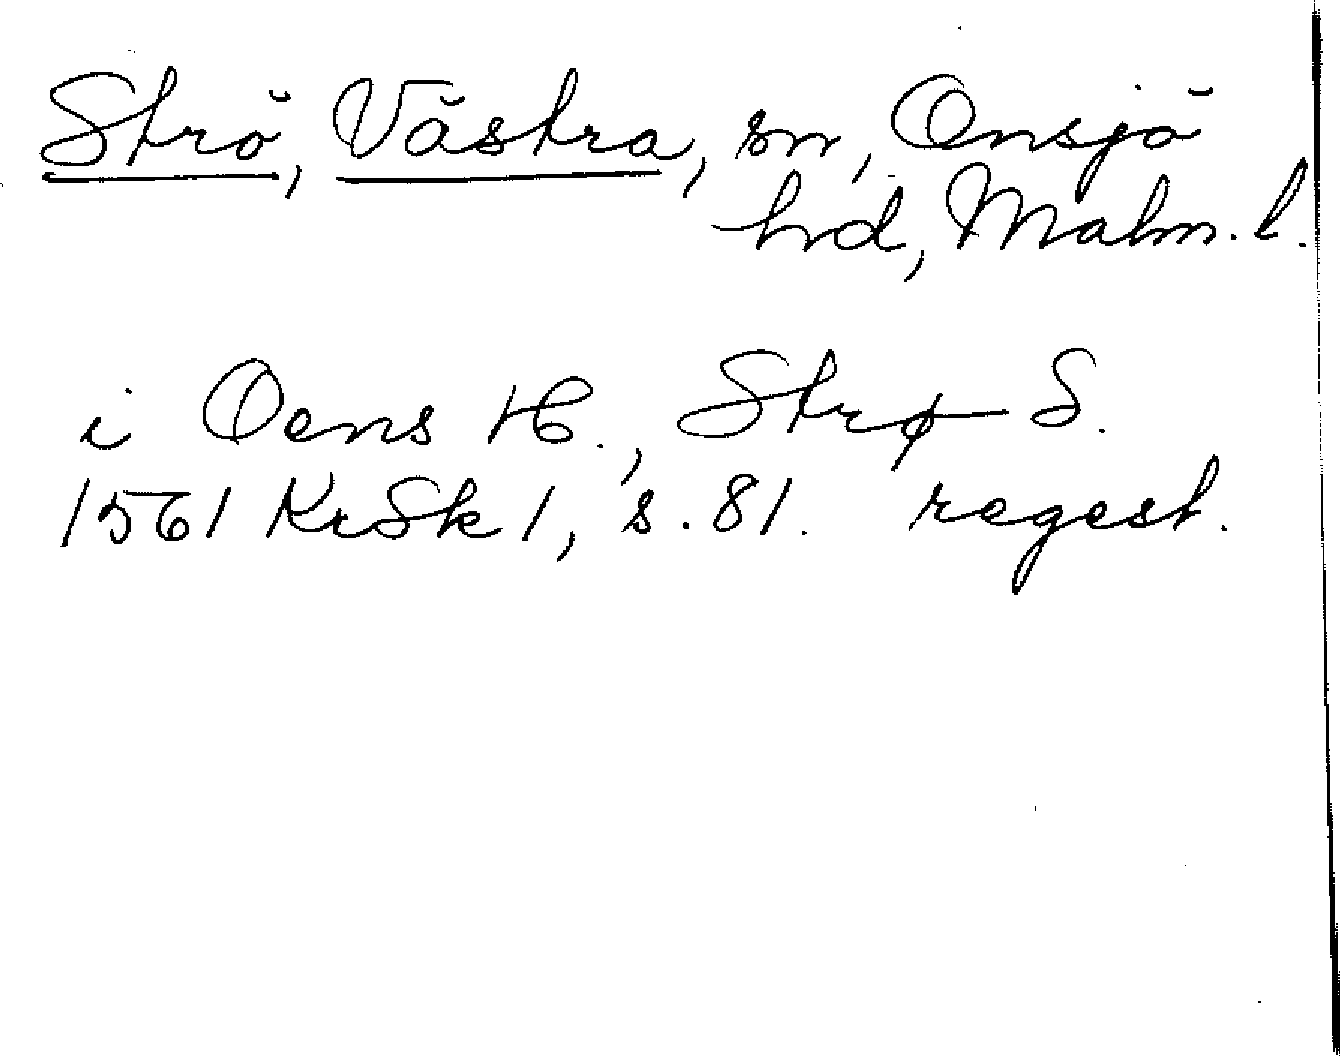 Strö, Västra, sn, Onsjö
hrd, Malm. l.
i Oens H., Strø S.
1561 KrSk 1, s. 81. regest.